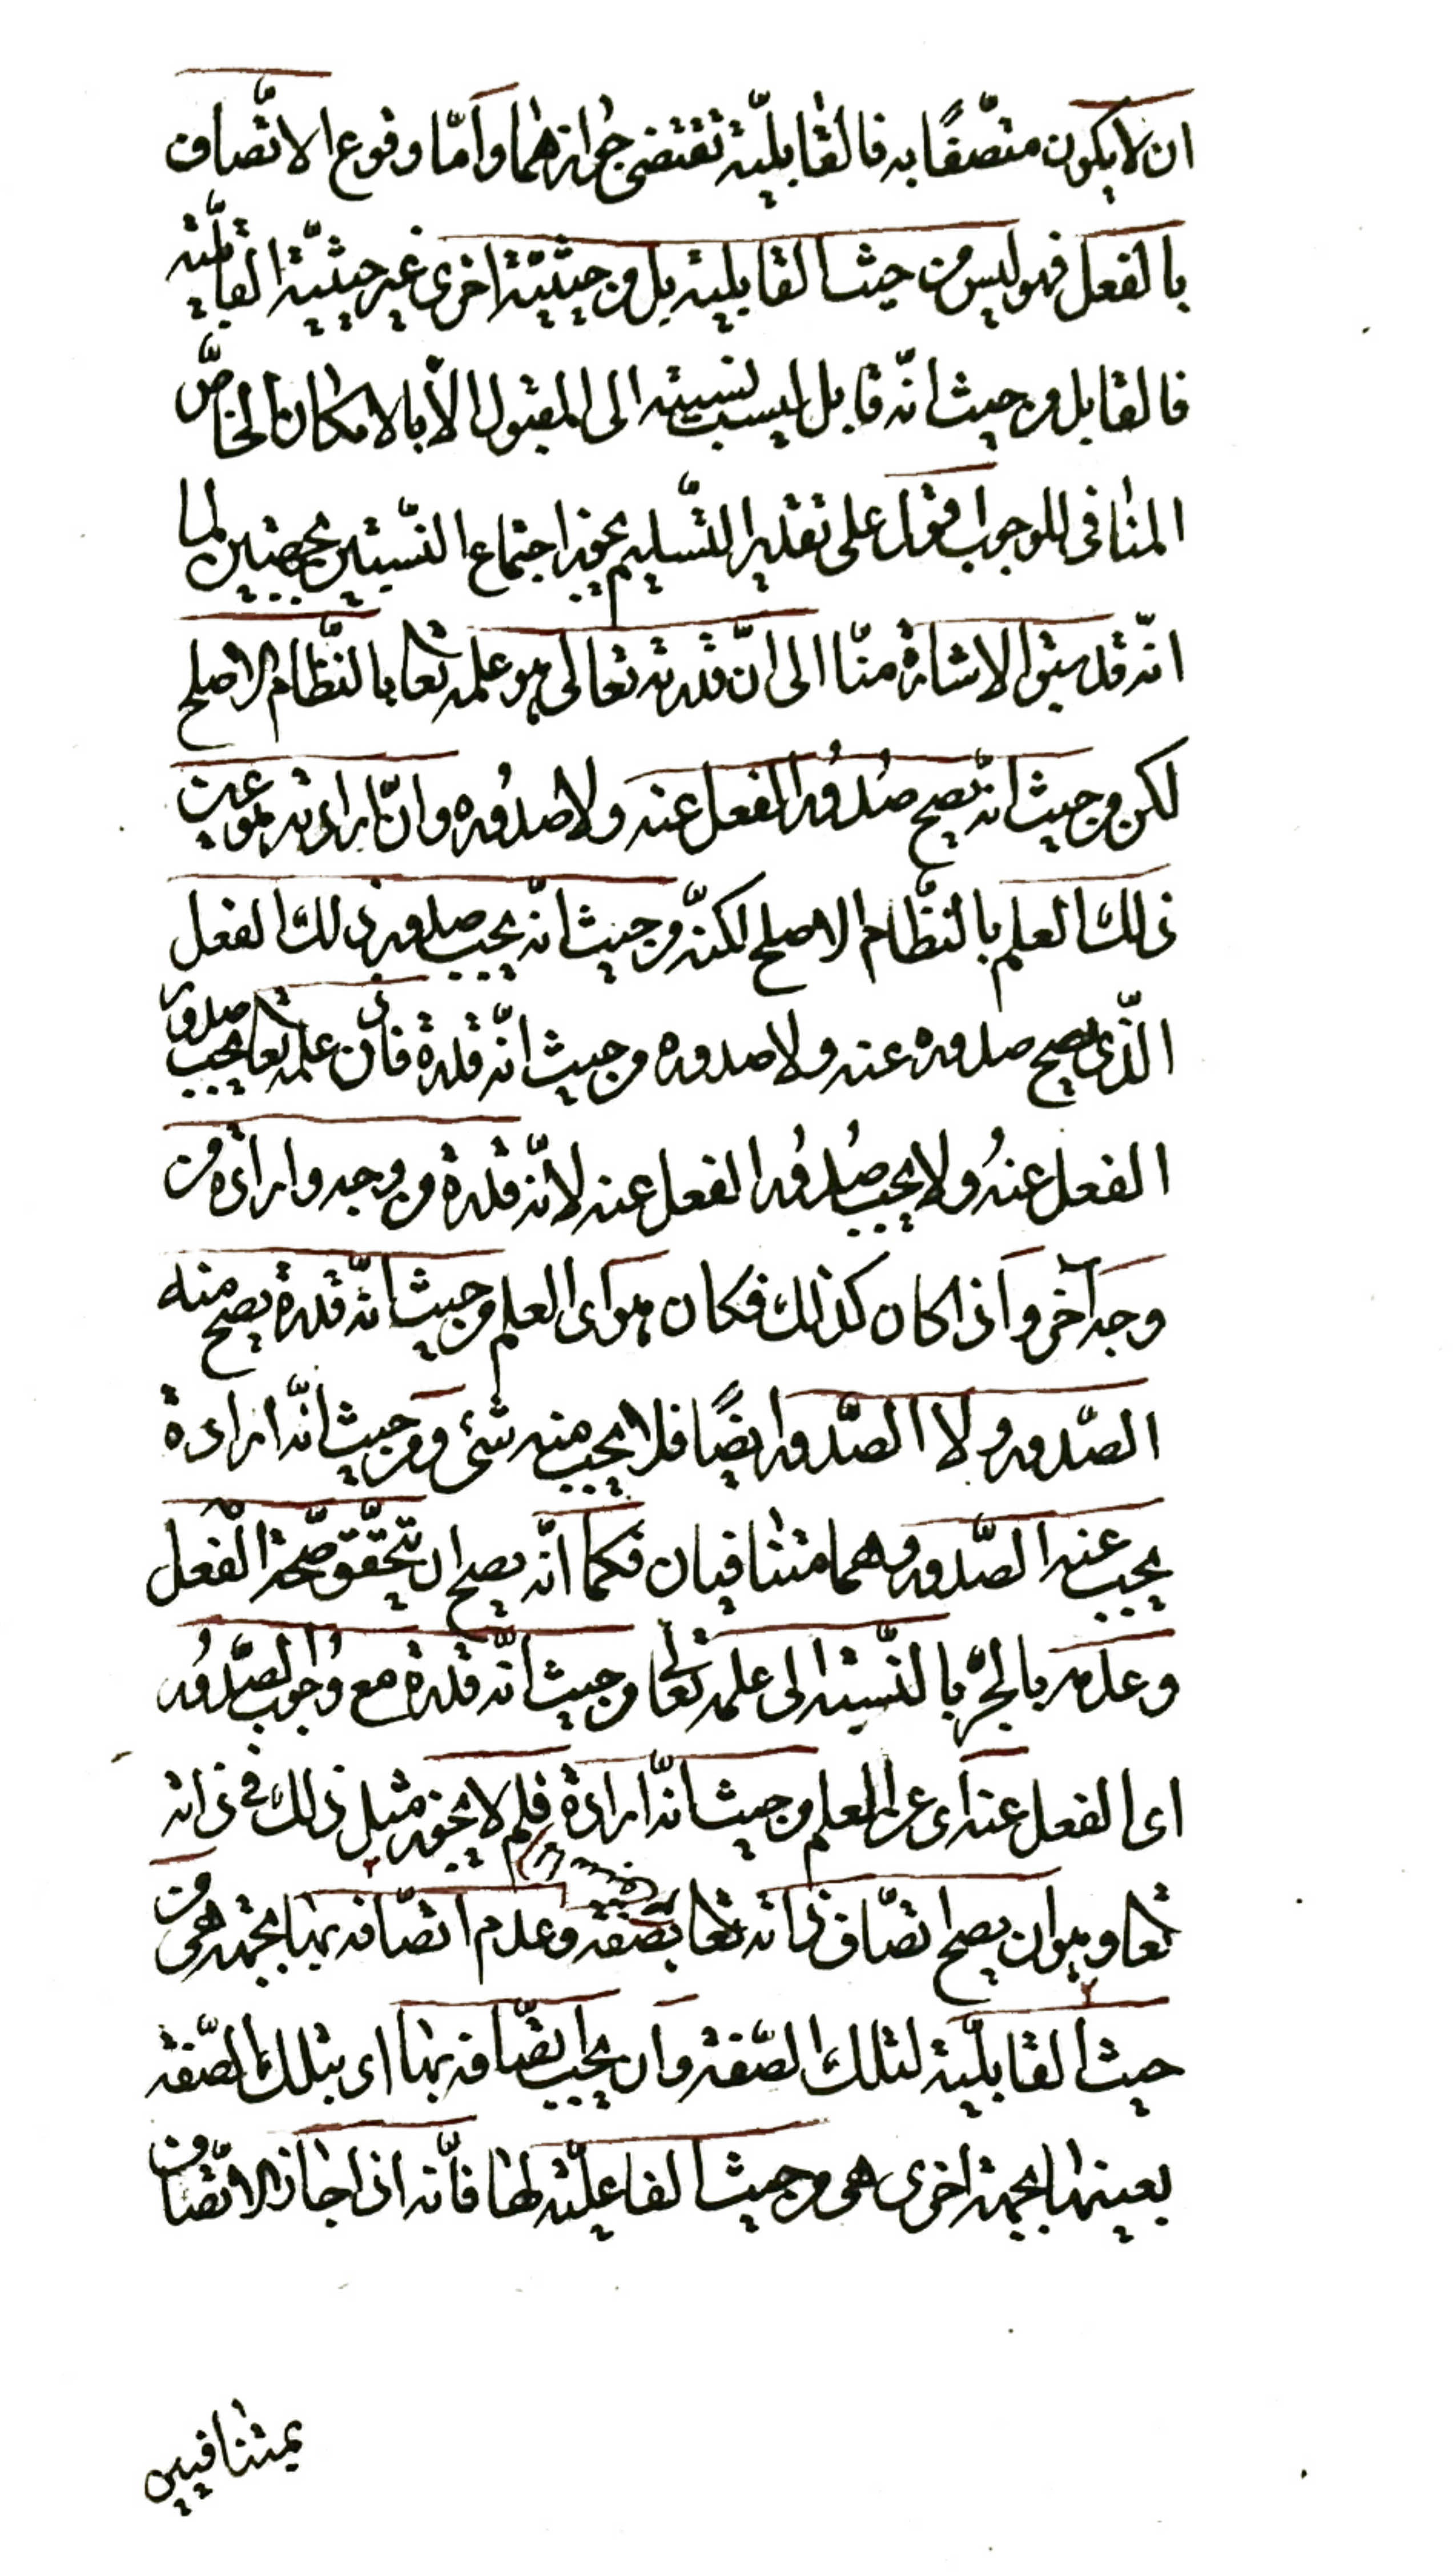 ان لا يكون متصّفًا به فالقابليّة تقتضى جوازهما وأمّا وقوع الاتّصاف
بالفعل فهو ليس من حيث القابلية بل من حيثيّة اخرى غير حيثيّة القابليّة
فالقابل من حيث انّه قابل ليست نسبته الى المقبول الّا بالامكان الخاصّ
المنافى للوجوب اقول على تقدير التّسليم يجوز اجتماع النّسبتين بجهتين لما
انّه قد سبق الاشارة منّا الى انّ قدرته تعالى هو علمه تعا بالنّظام الاصلح
لكن من حيث انّه يصح صُدُورُ الفعل عنه ولا صدُوره وانّ ارادته هو عين
ذلك العلم بالنّظام الاصلح لكنّه من حيث انّه يجب صدور ذلك الفعل
الّذى يصح صدوره عنه ولا صدوره من حيث انّه قدرة فاذن علمه تعا يجب صدور
الفعل عنهُ ولا يجب صُدُورُ الفعل عنه لانّه قدرة من وجه وارادة من
وجه آخر وأذا كان كذلك فكان هو أى العلم من حيث انّه قدرة يصح منه
الصّدور ولا الصّدور ايضًا فلا يجب منه شئ و من حيث انّه ارادة
يجب عنه الصّدور وهما متنافيان فكما انّه يصح ان يتحقّق صّحة الفعل
وعدمه بالجرّ بالنّسبة الى علمه تعالى من حيث انّه قدرة مع وُجوب الصّدُور
اى الفعل عنه أى عن العلم من حيث انّه ارادة فلم لا يجوز مثل ذلك فى ذاته
تعا وهو ان يصح اتصّاف ذاته تعا بصفة وعدم اتصّافه بها بجهة هى من
حيث القابليّة لتلك الصّفة وأن يجب اتصّافه بها اى بتلك الصّفة
بعينها بجهة اخرى هى من حيث الفاعليّة لها فأنّه اذا جاز الاتّصاف
بمتنافيين